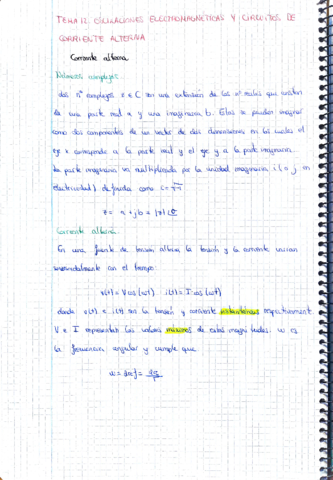 TEMA 12. OSCILACIONES ELECTROMAGNÉTICAS Y CIRCUITOS DE
CORRIENTE ALTERNA
Corriente alterna
Números complejos.
Los nº complejos z ∈ C son una extensión de los nº reales que constan
de una parte real a y una imaginaria b. Estos se pueden imaginar
como dos componentes de un vector de dos dimensiones en los cuales el
eje x corresponde a la parte real y el eje y a la parte imaginaria.
La parte imaginaria va multiplicada por la unidad imaginaria i (o j en
electricidad) definida como i=√-1
z = a + jb = |z|∠θ
Corriente alterna.
En una fuente de tensión alterna la tensión y la corriente varían
sinusoidalmente con el tiempo:
v(t) = V cos (ωt) i(t) = I cos (ωt)
donde v(t) e i(t) son la tensión y corriente instantáneas respectivamente
V e I representan los valores máximos de estas magnitudes. ω es
la frecuencia angular y cumple que
ω = 2πf = 2π/T